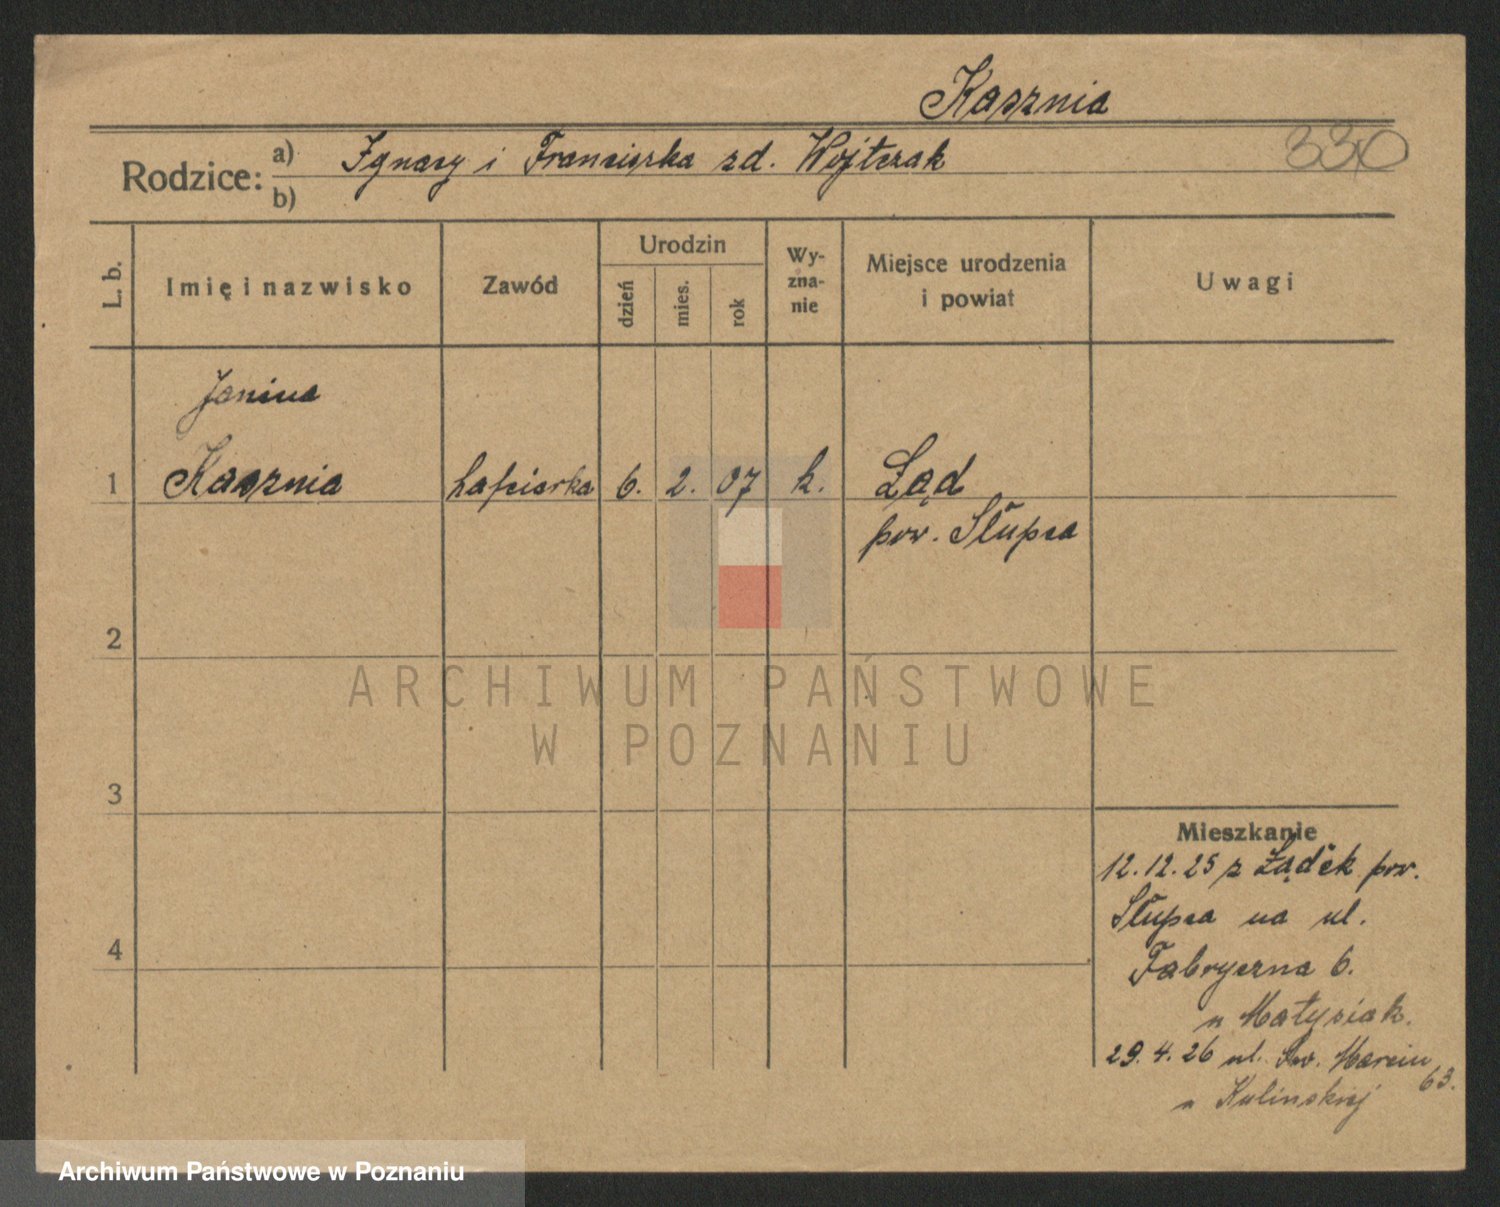 Kasznia
330
Rodzice:
a) Ignacy i Franciszka zd. Wojtczak
b)
L. b.
Imię i nazwisko
Zawód
Urodzin
dzień
mies.
rok
Wy-
zna-
nie
Miejsce urodzenia
i powiat
Uwagi
Janina
1 Kasznia hafciarka 6. 2. 07 k. Ląd
pow. Słupca
2
3
4
ARCHIWUM PAŃSTWOWE
W POZNANIU
Mieszkanie
12.12.25 z Lądek pow.
Słupca na ul.
Fabryczna 6.
u Matysiak.
29.4.26 ul. Św. Marcin
63.
u Kulinskiej
Archiwum Państwowe w Poznaniu